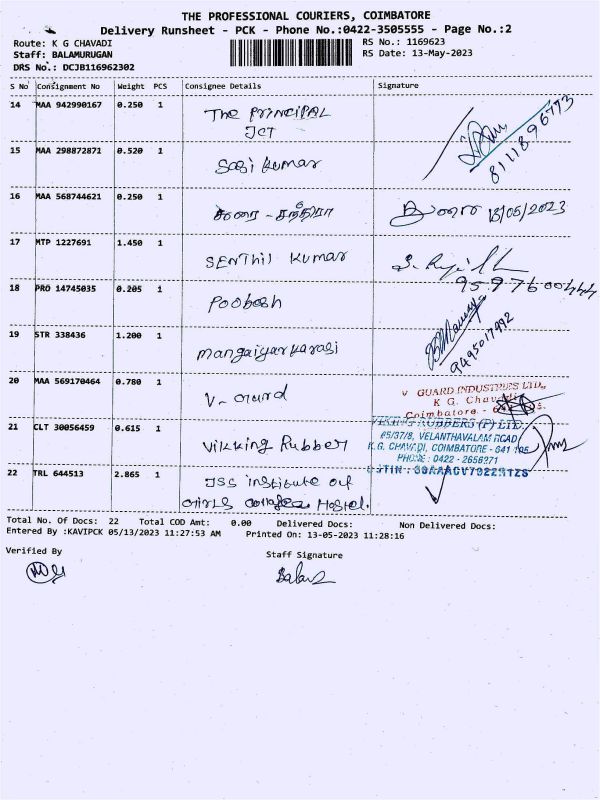 THE PROFESSIONAL COURIERS, COIMBATORE
Delivery Runsheet - PCK - Phone No.:0422-3505555 - Page No.:2
Route: K G CHAVADI RS No.: 1169623
Staff: BALAMURUGAN RS Date: 13-May-2023
DRS No.: DCJB116962302
S No Consignment No Weight PCS Consignee Details Signature
14 MAA 942990167 0.250 1 The PRINCIPAL
JCT
8111896773
15 MAA 298872871 0.520 1 Sasi Kumar
16 MAA 568744621 0.250 1 13/05/2023
17 MTP 1227691 1.450 1 SENThil Kumar
9597600444
18 PRO 14745035 0.205 1 Poobesh
19 STR 338436 1.200 1 mangaiyarkarasi
9495017992
20 MAA 569170464 0.780 1 V-Gurd
V GUARD INDUSTRIES LTD.,
K G. Chavadi
Coimbatore -
21 CLT 30056459 0.615 1 Vikking Rubber
VIKING RUBBERS (P) LTD.
65/37/8, VELANTHAVALAM ROAD
K.G. CHAVADI, COIMBATORE - 641 105
PHONE : 0422 - 2656271
22 TRL 644513 2.865 1 JSS institute of
Girls college Hostel.
Total No. Of Docs: 22 Total COD Amt: 0.00 Delivered Docs: Non Delivered Docs:
Entered By :KAVIPCK 05/13/2023 11:27:53 AM Printed On: 13-05-2023 11:28:16
Verified By Staff Signature